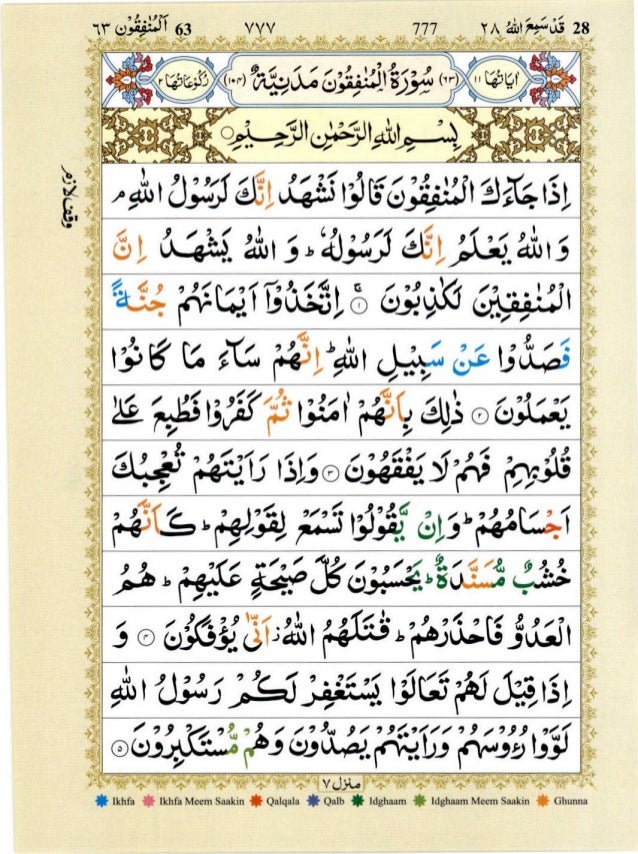 اَلْمُنٰفِقُوْن ٦٣ 63 ٧٧٧ 777 قَدْ سَمِعَ اللّٰهُ ٢٨ 28
اٰيَاتُهَا ١١ (٦٣) سُوْرَةُ الْمُنٰفِقُوْنَ مَدَنِيَّةٌ (١٠٤) رُكُوْعَاتُهَا ٢
بِسْمِ اللّٰهِ الرَّحْمٰنِ الرَّحِيْمِ
اِذَا جَآءَكَ الْمُنٰفِقُوْنَ قَالُوْا نَشْهَدُ اِنَّكَ لَرَسُوْلُ اللّٰهِ ۘ
وقف لازم
وَ اللّٰهُ يَعْلَمُ اِنَّكَ لَرَسُوْلُهٗ ؕ وَ اللّٰهُ يَشْهَدُ اِنَّ
الْمُنٰفِقِيْنَ لَكٰذِبُوْنَ ۚ ١ اِتَّخَذُوْۤا اَيْمَانَهُمْ جُنَّةً
فَصَدُّوْا عَنْ سَبِيْلِ اللّٰهِ ؕ اِنَّهُمْ سَآءَ مَا كَانُوْا
يَعْمَلُوْنَ ٢ ذٰلِكَ بِاَنَّهُمْ اٰمَنُوْا ثُمَّ كَفَرُوْا فَطُبِعَ عَلٰى
قُلُوْبِهِمْ فَهُمْ لَا يَفْقَهُوْنَ ٣ وَاِذَا رَاَيْتَهُمْ تُعْجِبُكَ
اَجْسَامُهُمْ ؕ وَاِنْ يَّقُوْلُوْا تَسْمَعْ لِقَوْلِهِمْ ؕ كَاَنَّهُمْ
خُشُبٌ مُّسَنَّدَةٌ ؕ يَحْسَبُوْنَ كُلَّ صَيْحَةٍ عَلَيْهِمْ ؕ هُمُ
الْعَدُوُّ فَاحْذَرْهُمْ ؕ قٰتَلَهُمُ اللّٰهُ ؗ اَنّٰى يُؤْفَكُوْنَ ٤ وَ
اِذَا قِيْلَ لَهُمْ تَعَالَوْا يَسْتَغْفِرْ لَكُمْ رَسُوْلُ اللّٰهِ
لَوَّوْا رُءُوْسَهُمْ وَرَاَيْتَهُمْ يَصُدُّوْنَ وَهُمْ مُّسْتَكْبِرُوْنَ ٥
منزل ٧
Ikhfa Ikhfa Meem Saakin Qalqala Qalb Idghaam Idghaam Meem Saakin Ghunna